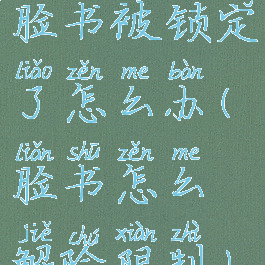 脸书被锁定
liǎo zěn me bàn
了怎么办(
liǎn shū zěn me
脸书怎么
jiě chú xiàn zhì
解除限制)